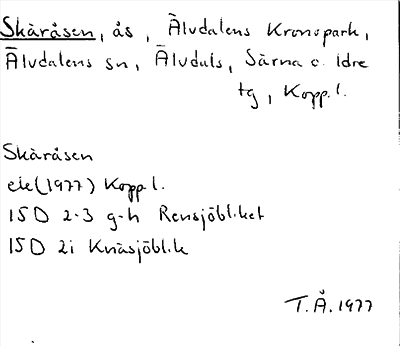 Skåråsen, ås, Älvdalens Kronopark,
Älvdalens sn, Älvdals, Särna o. Idre
tg, Kopp.l.
Skåråsen
ek (1977) Kopp.l.
15D 2-3 g-h Rensjöbliket
15D 2i Knäsjöblik
T.Å. 1977